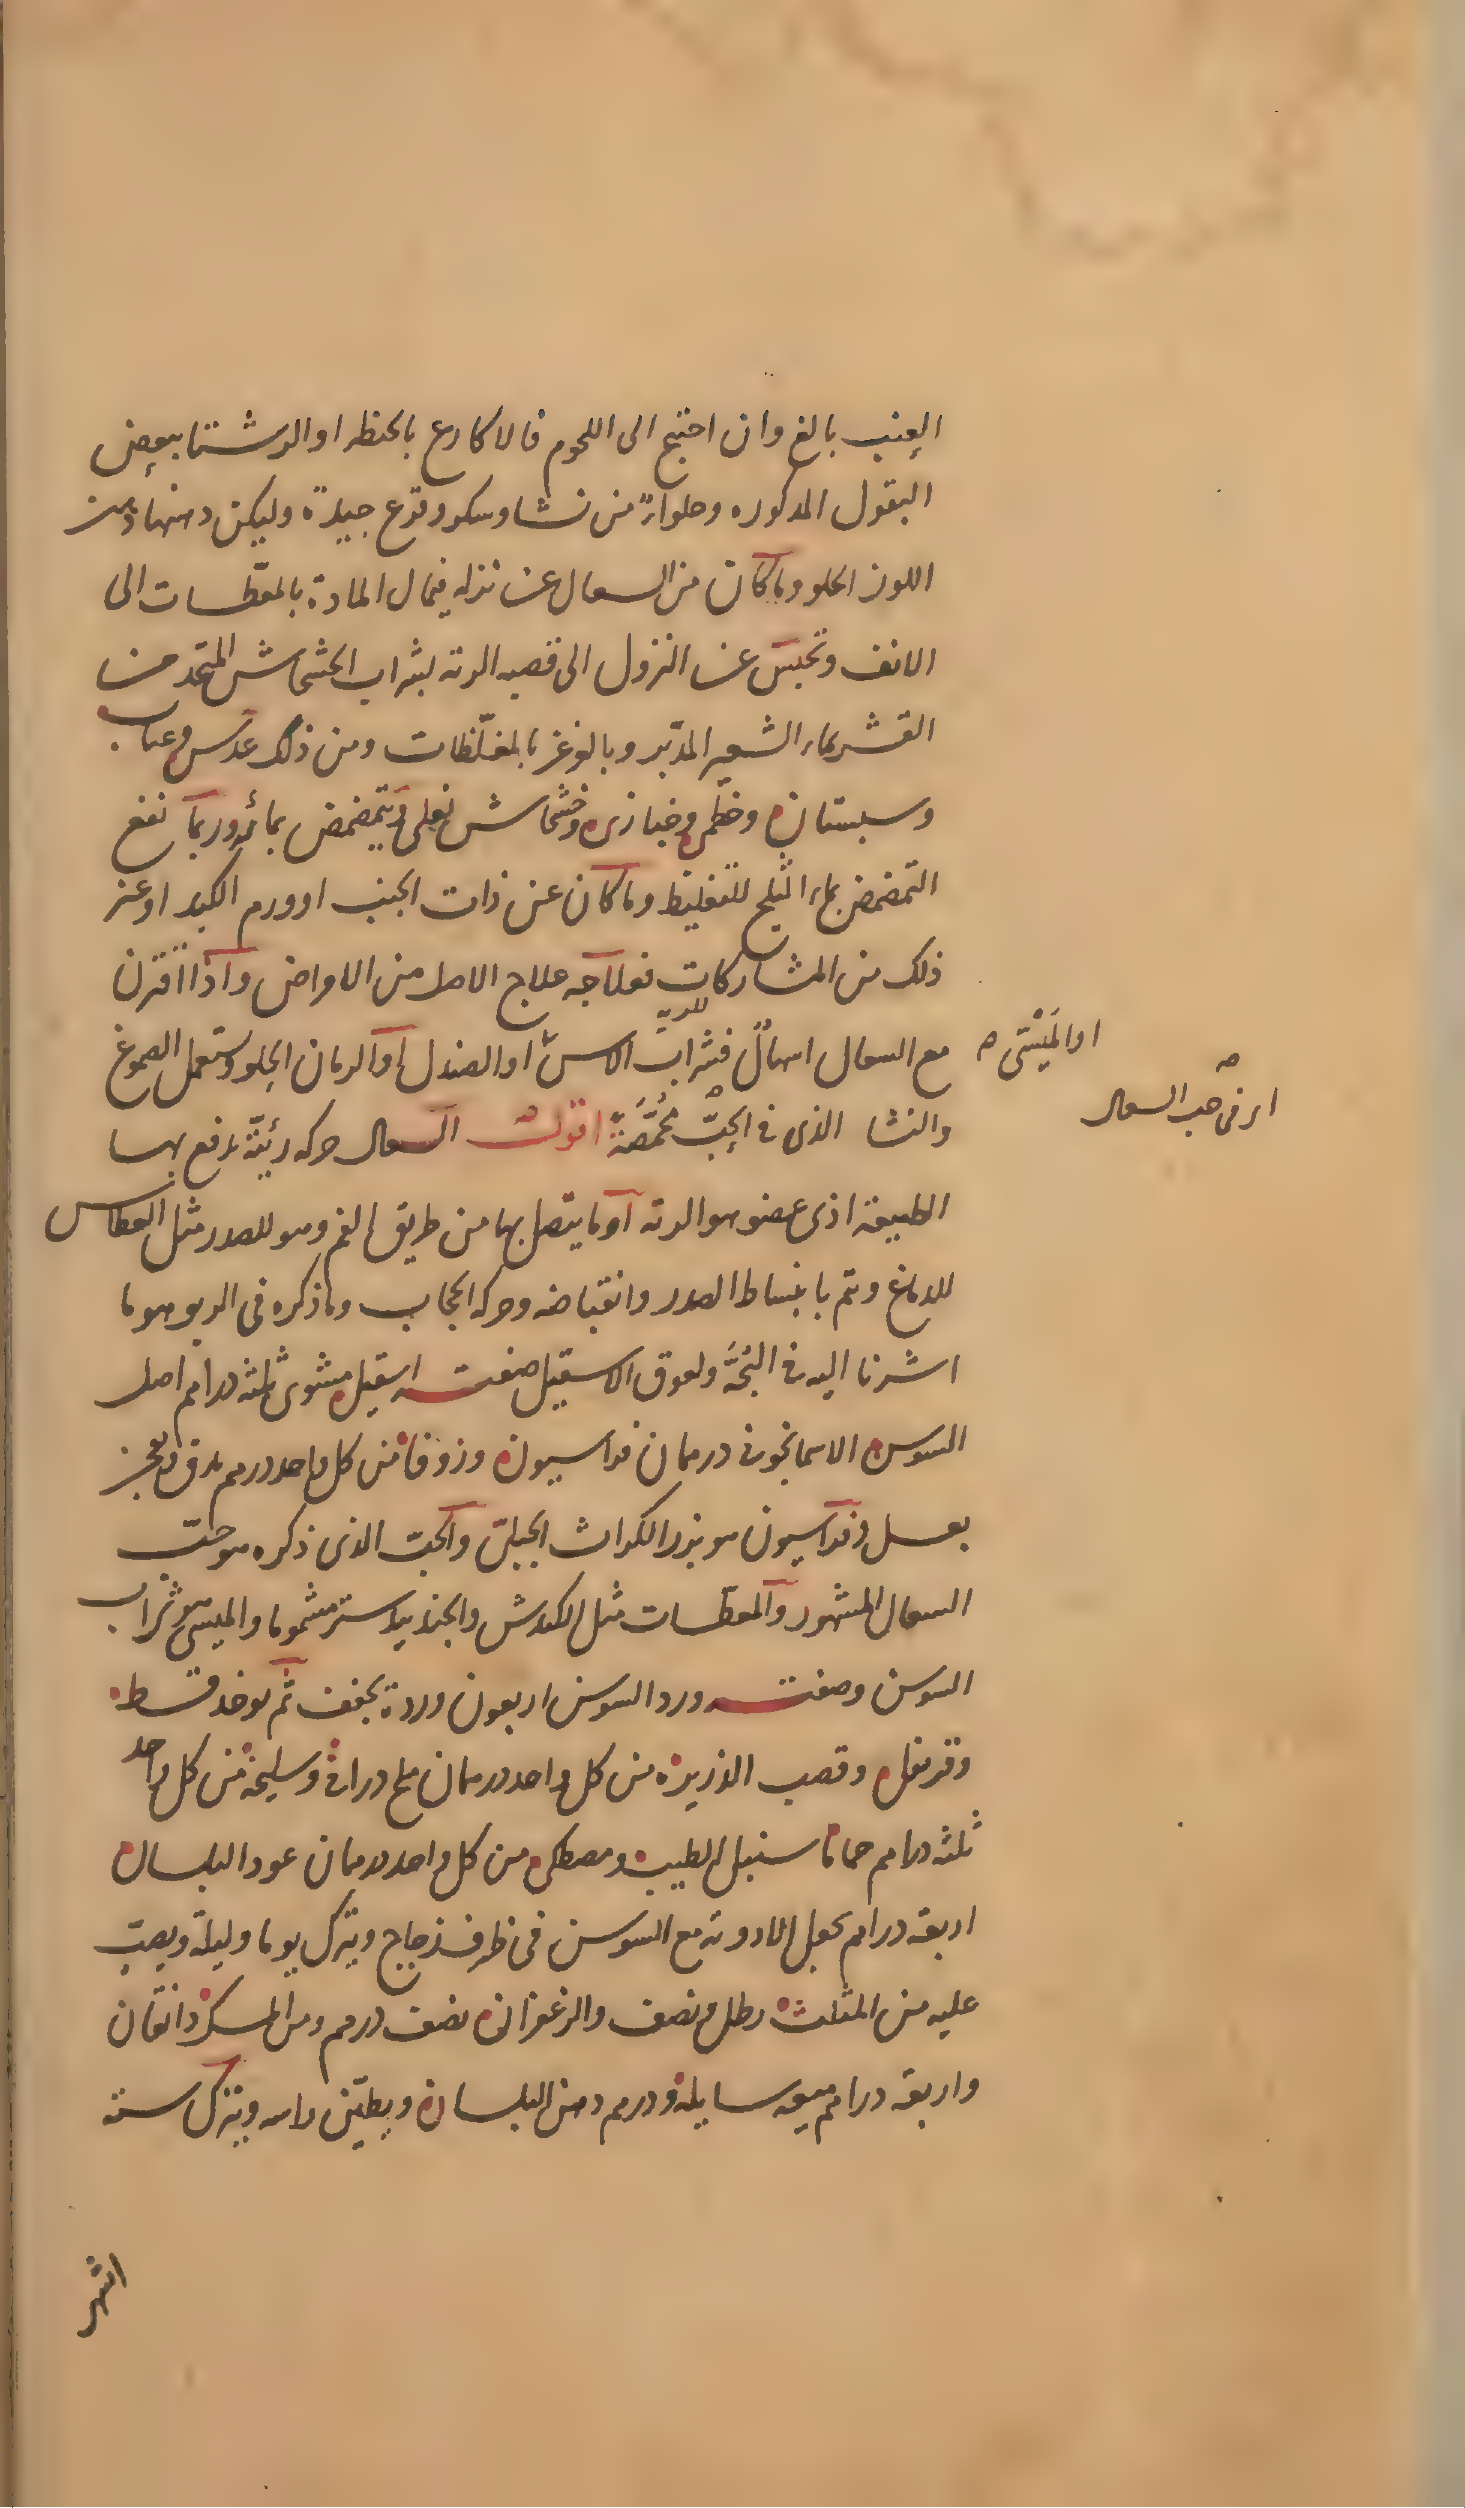 العنب بالغ وان احتيج الى اللحوم فالاكارع بالحنطه او الرشتا ببعض
البقول المذكوره وحلواءٌ من نشا وسكر وقرع جيدة وليكن دهنها دهن
اللوز الحلو وما كان من السعال عن نزله فيمال المادة بالمعطسات الى
الانف وتحبس عن النزول الى قصبه الريه بشراب الخشخاش المتخذ من
القشر بماء الشعير المدبّر وبالغرغر بالمغلّظات ومن ذلك عدس وعناب
وسبستان وخطمى وخبازى وخشخاش تغلى ويتمضمض بمائه وربما نفع
التمضمض بماء الثلج للتغليظ وما كان عن ذات الجنب او ورم الكبد او عن
ذلك من المشاركات فعلاجه علاج الاصل من الامراض واذا اقترن
مع السعال اسهالٌ فشراب الاس او الصندل او الرمان الحلو وتستعمل الصموغ
او المَيْسَنى صح
للريه
اى فى حب السعال
والنشا الذى فى الحبّ محمَّصَةً اقول السعال حركه رئيّة تدفع بها
الطبيعة اذى عضو هو الريه او ما يتصل بها من طريق الفم وهو للصدر مثل العطاس
للدماغ ويتم بانبساط الصدر وانقباضه وحركه الحجاب وما ذكره فى الربو هو ما
اشرنا اليه فى البُحَّة ولعوق الاسقيل صفته اسقيل مشوى ثلثه دراهم اصل
السوسن الاسمانجونى درهمان فراسيون وزوفا من كل واحد درهم يدق ويعجن
بعسل وفراسيون هو بزر الكراث الجبلى والحب الذى ذكره هو حبّ
السعال المشهور والمعطسات مثل الكندش والجندبيدستر مشموما والميسنى هو شراب
السوسن وصفته ورد السوسن اربعون وردة يجفف ثم يوخذ قسط
وقرنفل وقصب الذريره من كل واحد درهمان ملح درانى وسليخه من كل واحد
ثلثه دراهم حماما سنبل الطيب ومصطكى من كل واحد درهمان عود البلسان
اربعة دراهم يجعل الادويه مع السوسن فى ظرف زجاج ويترك يوما وليلة ويصبّ
عليه من المثلث رطل ونصف والزعفران نصف درهم ومن المسك دانقان
واربعة دراهم ميعه سايله ودرهم دهن البلسان ويطيّن راسه ويترك ستة
اشهر